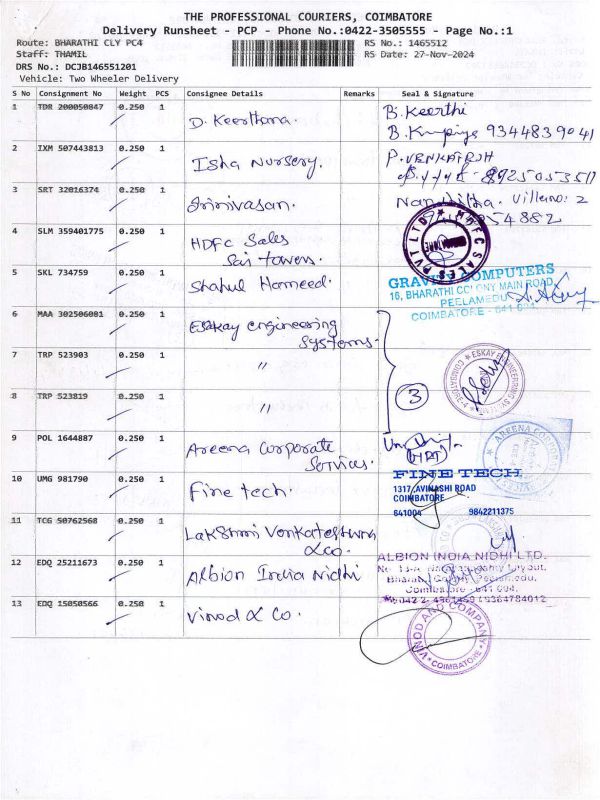 THE PROFESSIONAL COURIERS, COIMBATORE
Delivery Runsheet - PCP - Phone No.:0422-3505555 - Page No.:1
Route: BHARATHI CLY PC4
RS No.: 1465512
Staff: THAMIL
RS Date: 27-Nov-2024
DRS No.: DCJB146551201
Vehicle: Two Wheeler Delivery
S No Consignment No Weight PCS Consignee Details Remarks Seal & Signature
1 TDR 200050847 0.250 1 D. Keerthana. B. Keerthi
9344839041
2 IXM 507443813 0.250 1 Isha Nursery.
3 SRT 32016374 0.250 1 Srinivasan.
4 SLM 359401775 0.250 1 HDFC Sales
Sai towers.
HDFC SALES PVT LTD
5 SKL 734759 0.250 1 Shahul Hameed.
COMPUTERS
16, BHARATHI COLONY MAIN ROAD,
PEELAMEDU
COIMBATORE - 641 004
6 MAA 302506081 0.250 1 Eskay engineering
Systems.
7 TRP 523903 0.250 1 "
ESKAY ENGINEERING
COIMBATORE-4
8 TRP 523819 0.250 1 "
3
9 POL 1644887 0.250 1 Areena Corporate
Services.
AREENA CORPORATE
10 UMG 981790 0.250 1 Fine tech.
FINE TECH
1317, AVINASHI ROAD
COIMBATORE
641004 9842211375
11 TCG 50762568 0.250 1 Lakshmi Venkateshwra
& co.
12 EDQ 25211673 0.250 1 Albion India Nidhi
ALBION INDIA NIDHI LTD.
Peelamedu,
Coimbatore - 641 004.
13 EDQ 15050566 0.250 1 Vinod & Co.
VINOD AND COMPANY
COIMBATORE